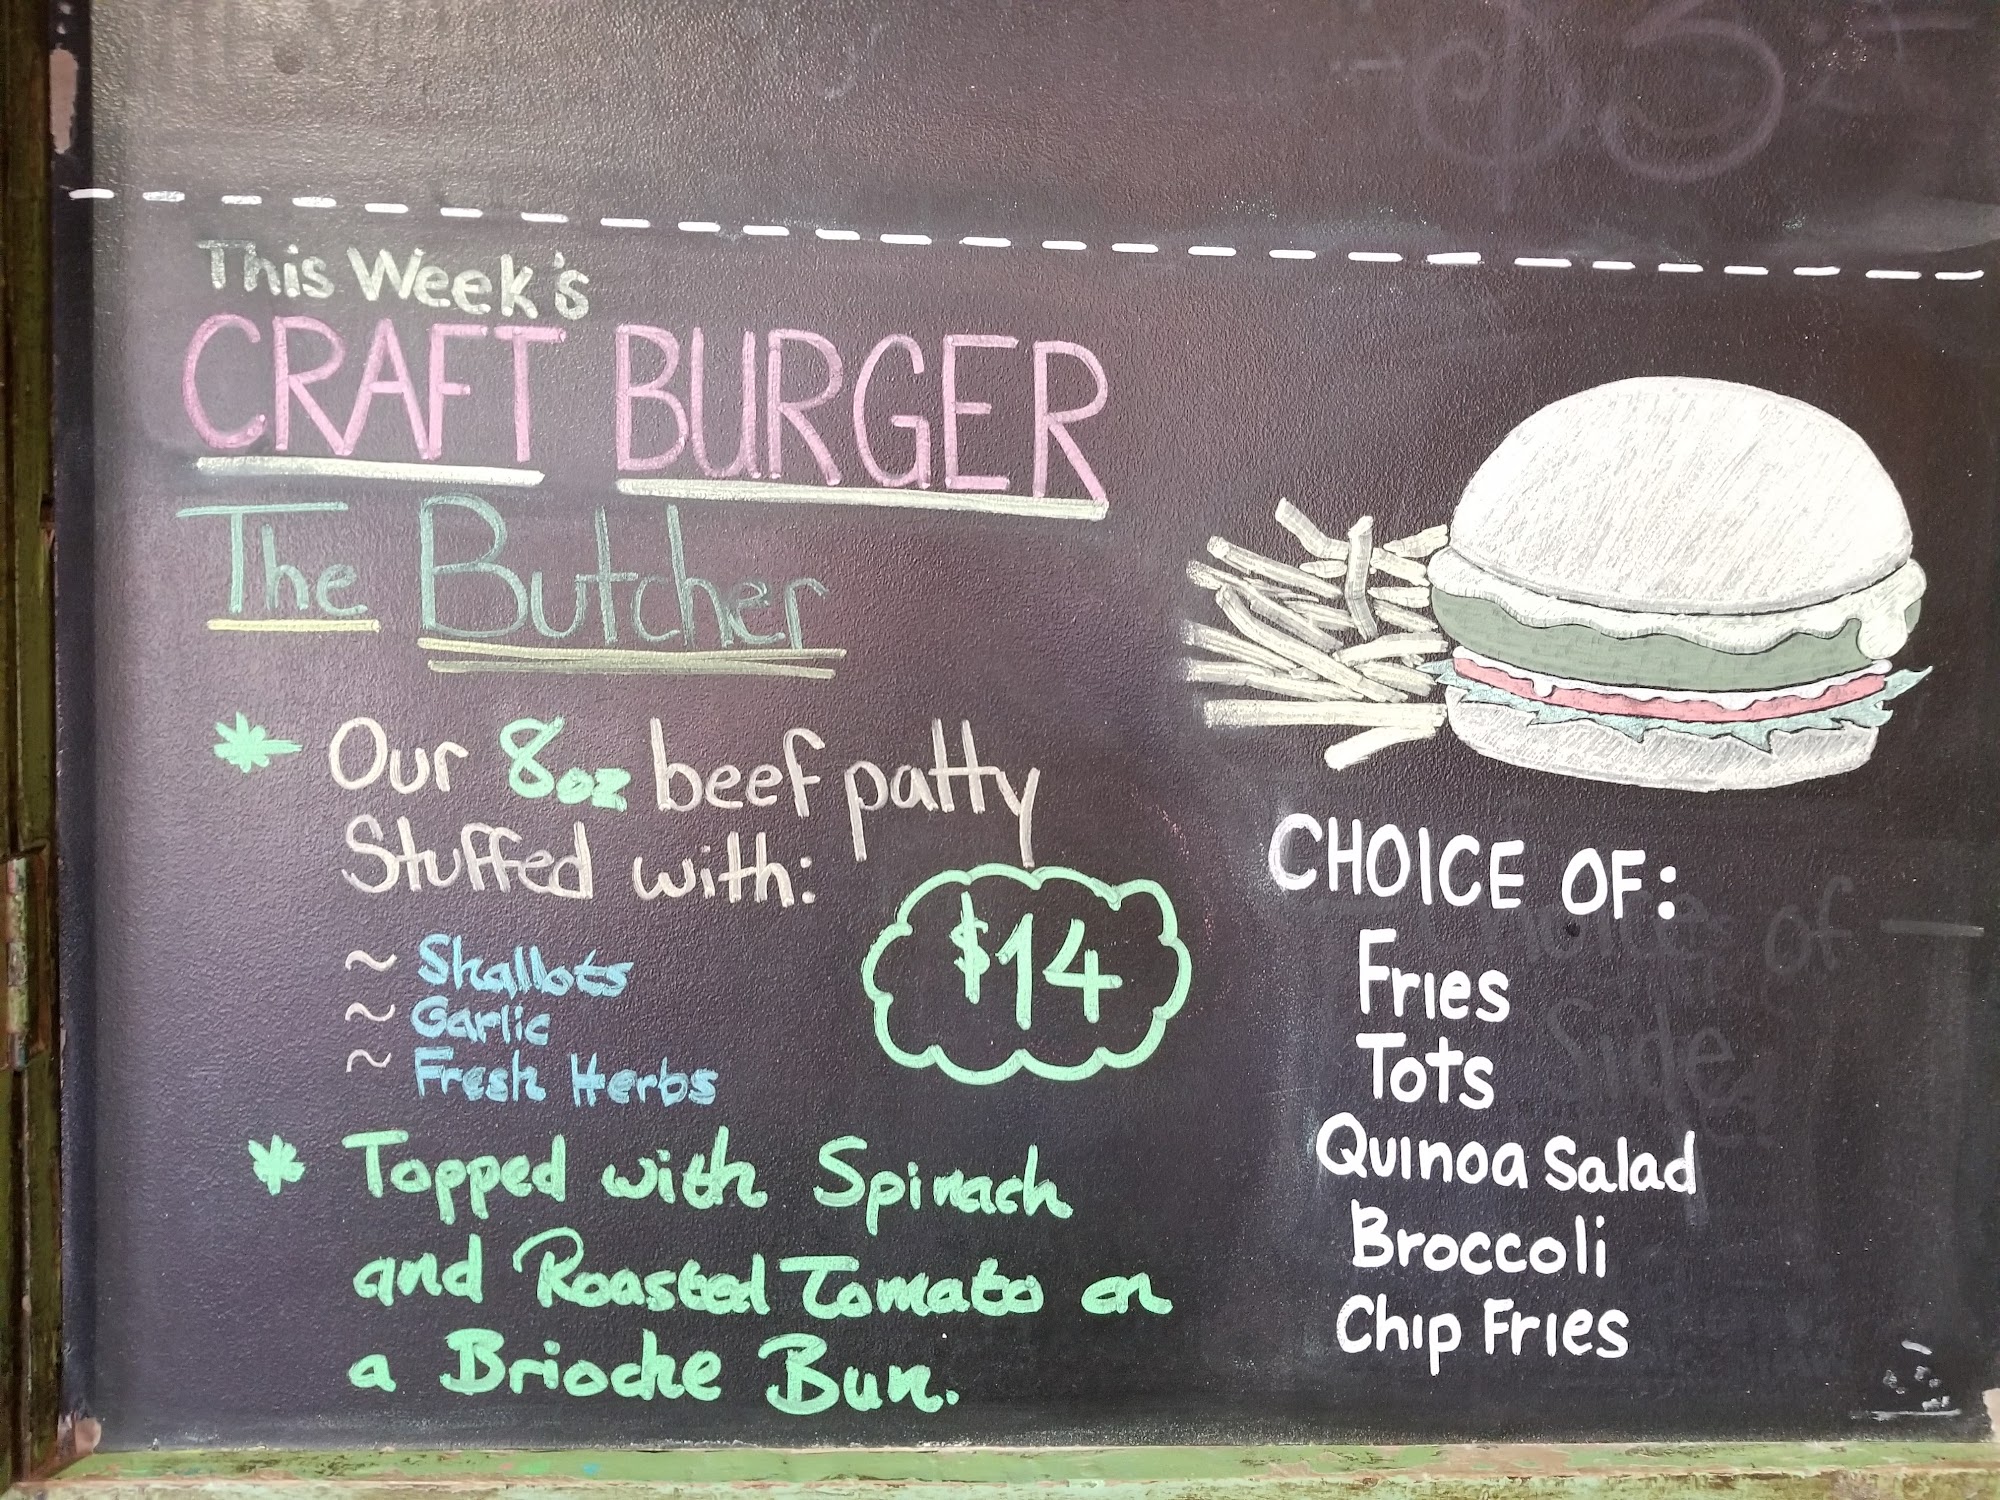 This Week's
CRAFT BURGER
The Butcher
* Our 8oz beef patty
Stuffed with:
~ Shallots
~ Garlic
~ Fresh Herbs
$14
* Topped with Spinach
and Roasted Tomato on
a Brioche Bun.
CHOICE OF:
Fries
Tots
Quinoa Salad
Broccoli
Chip Fries
Choice of
Side